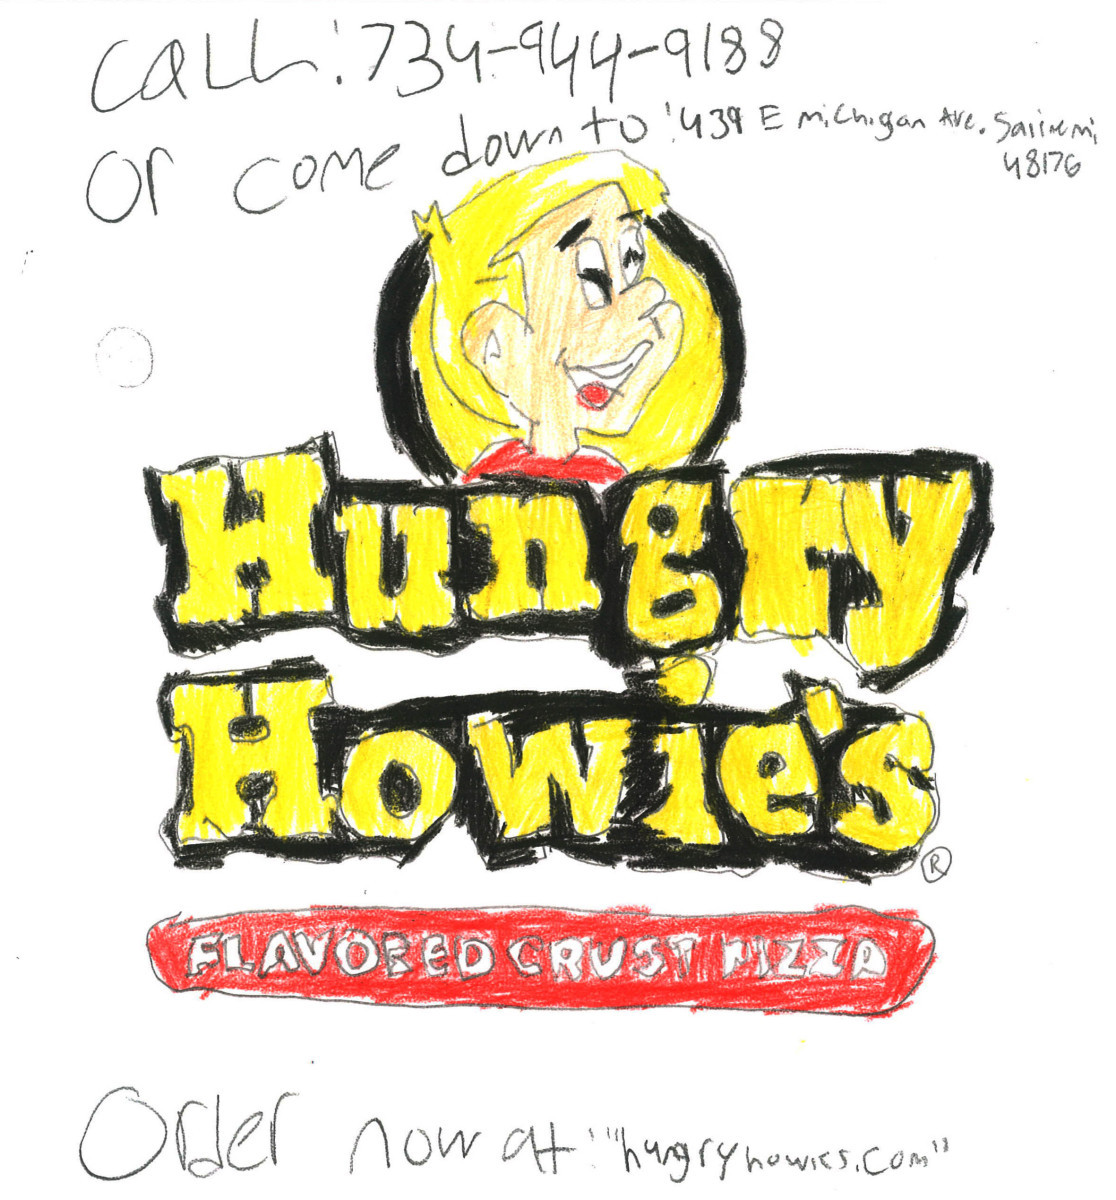 CALL: 734-944-9188
or come down to: 439 E michigan Ave. Saline mi,
48176
Hungry
Howie's
®
FLAVORED CRUST PIZZA
Order now at: "hungryhowies.com"